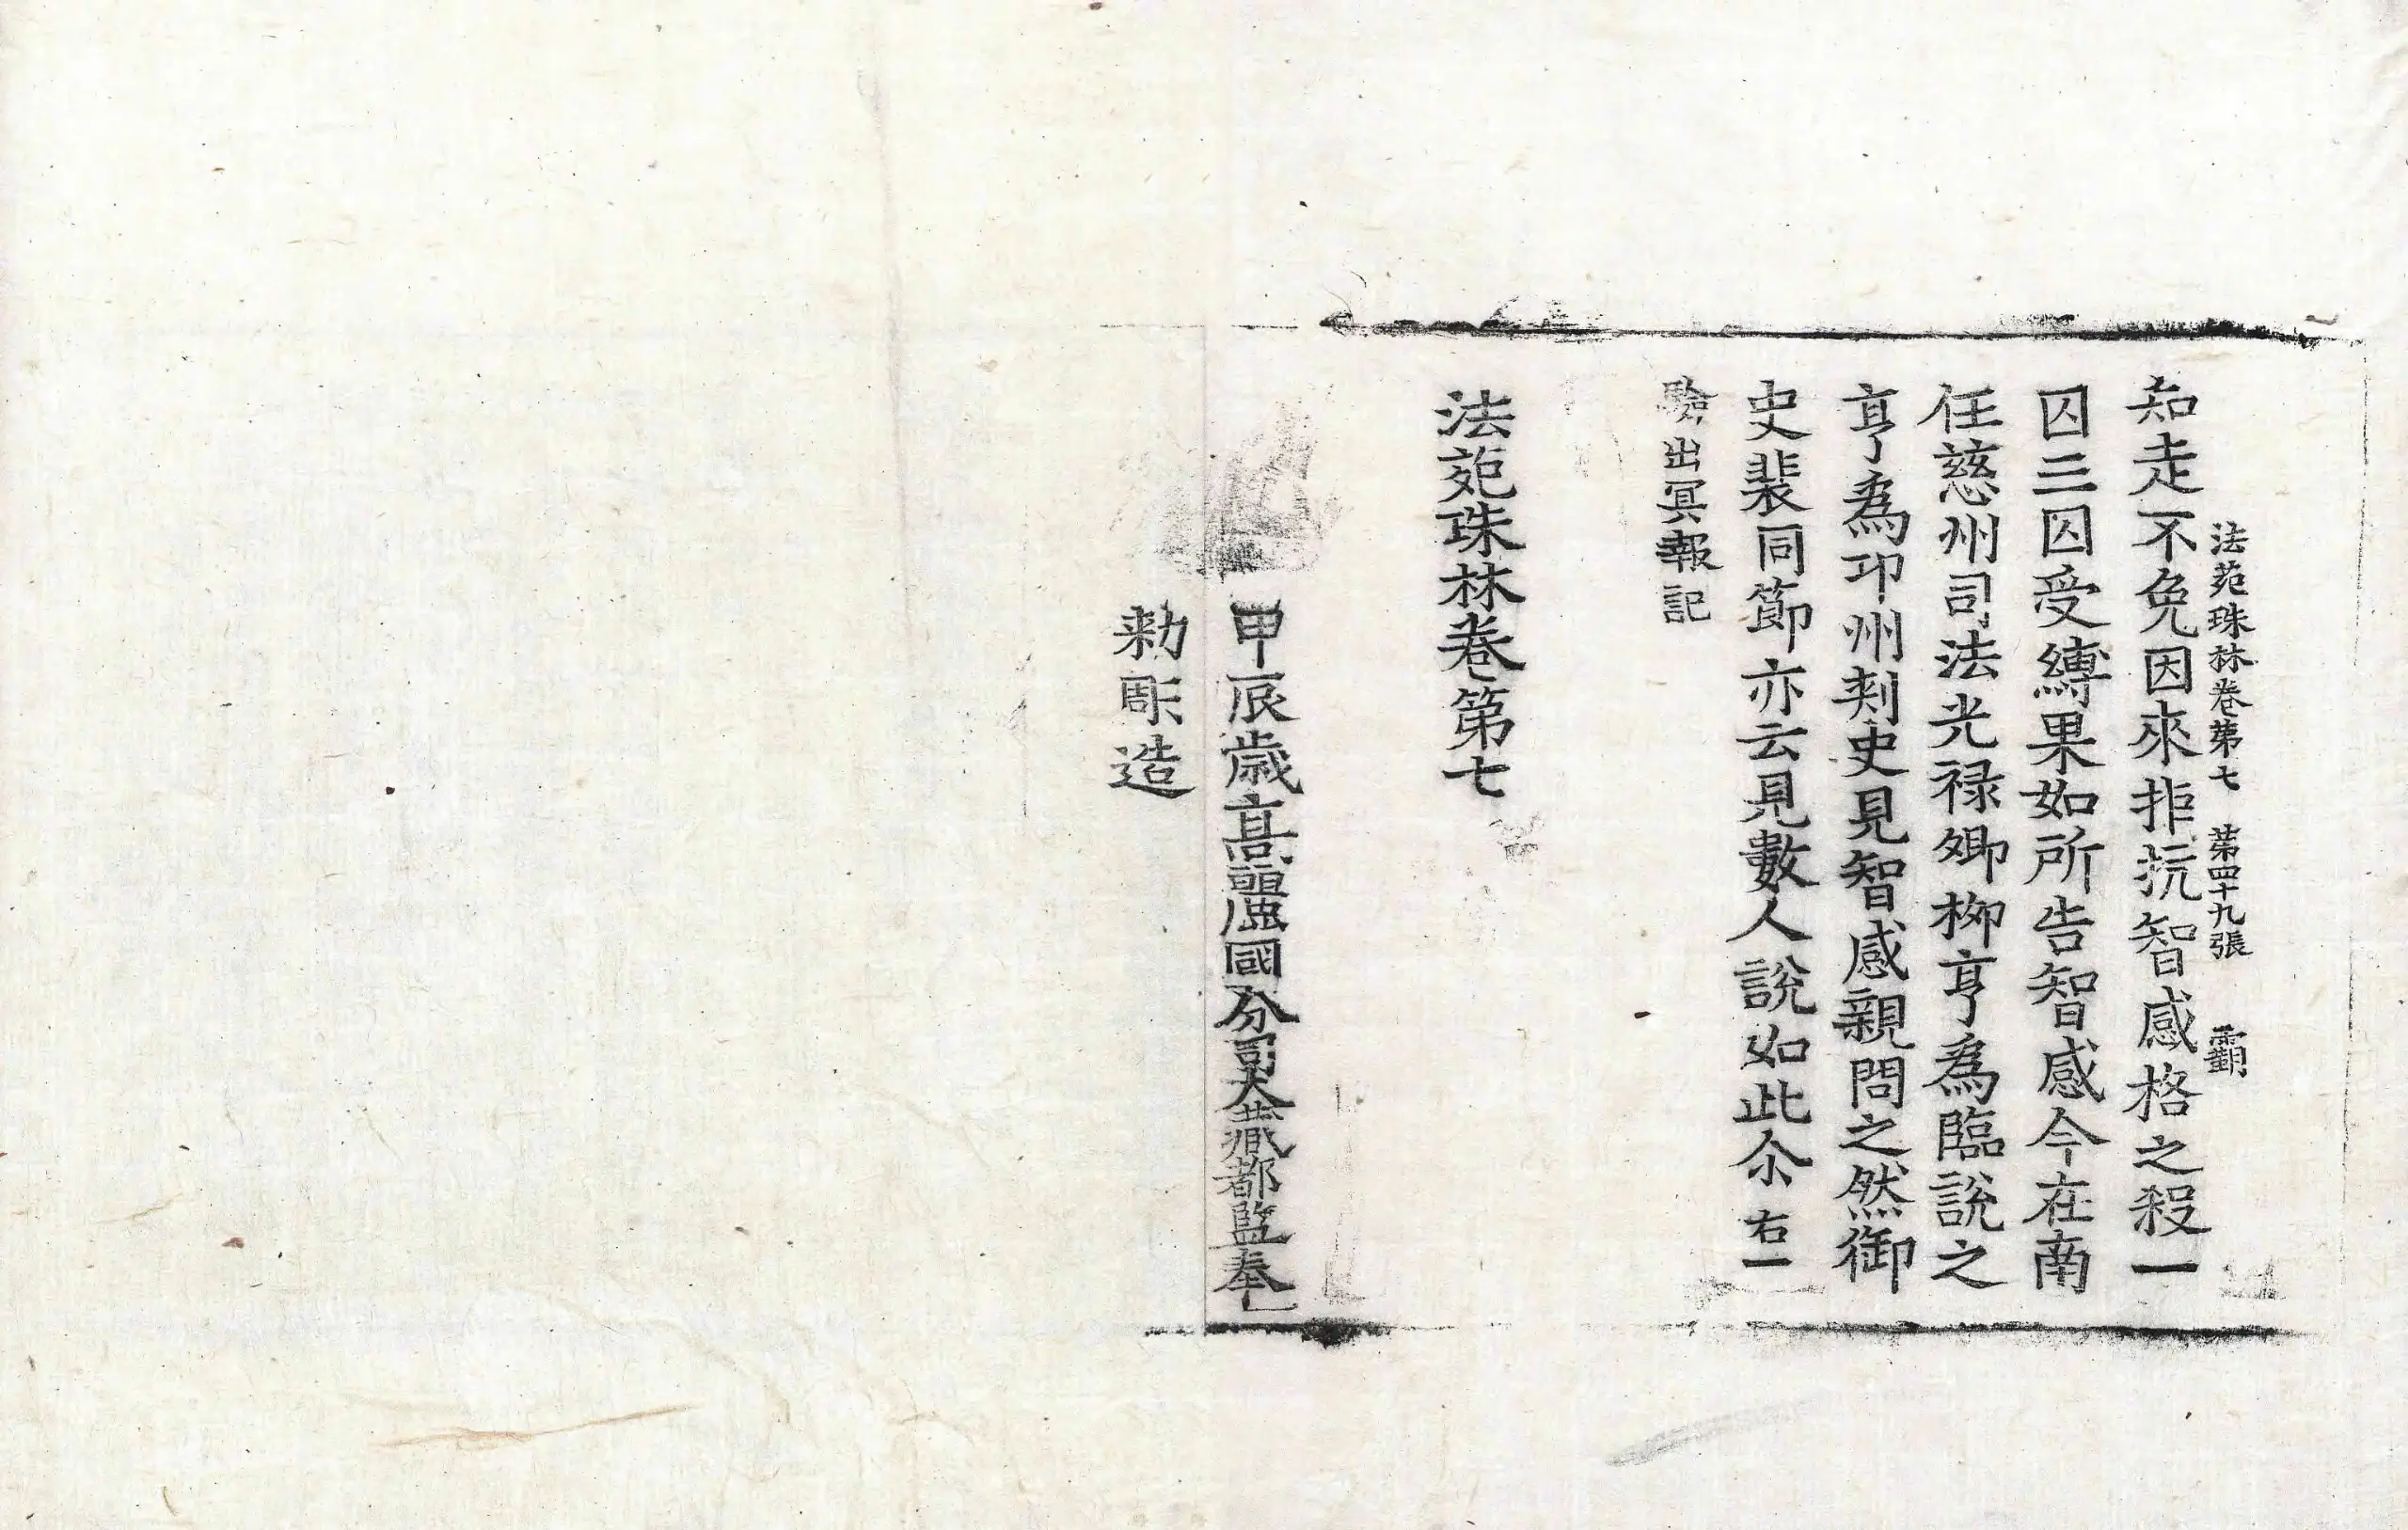 法苑珠林卷第七 第四十九張 覇
知走不免因來拒抗智感格之殺一
囚三囚受縛果如所告智感今在南
任慈州司法光禄卿柳亨為臨說之
亨為邛州刾史見智感親問之然御
史裴同節亦云見數人說如此尒 右一
驗出冥報記
法苑珠林卷第七
甲辰歳高麗國分司大藏都監奉
勑彫造